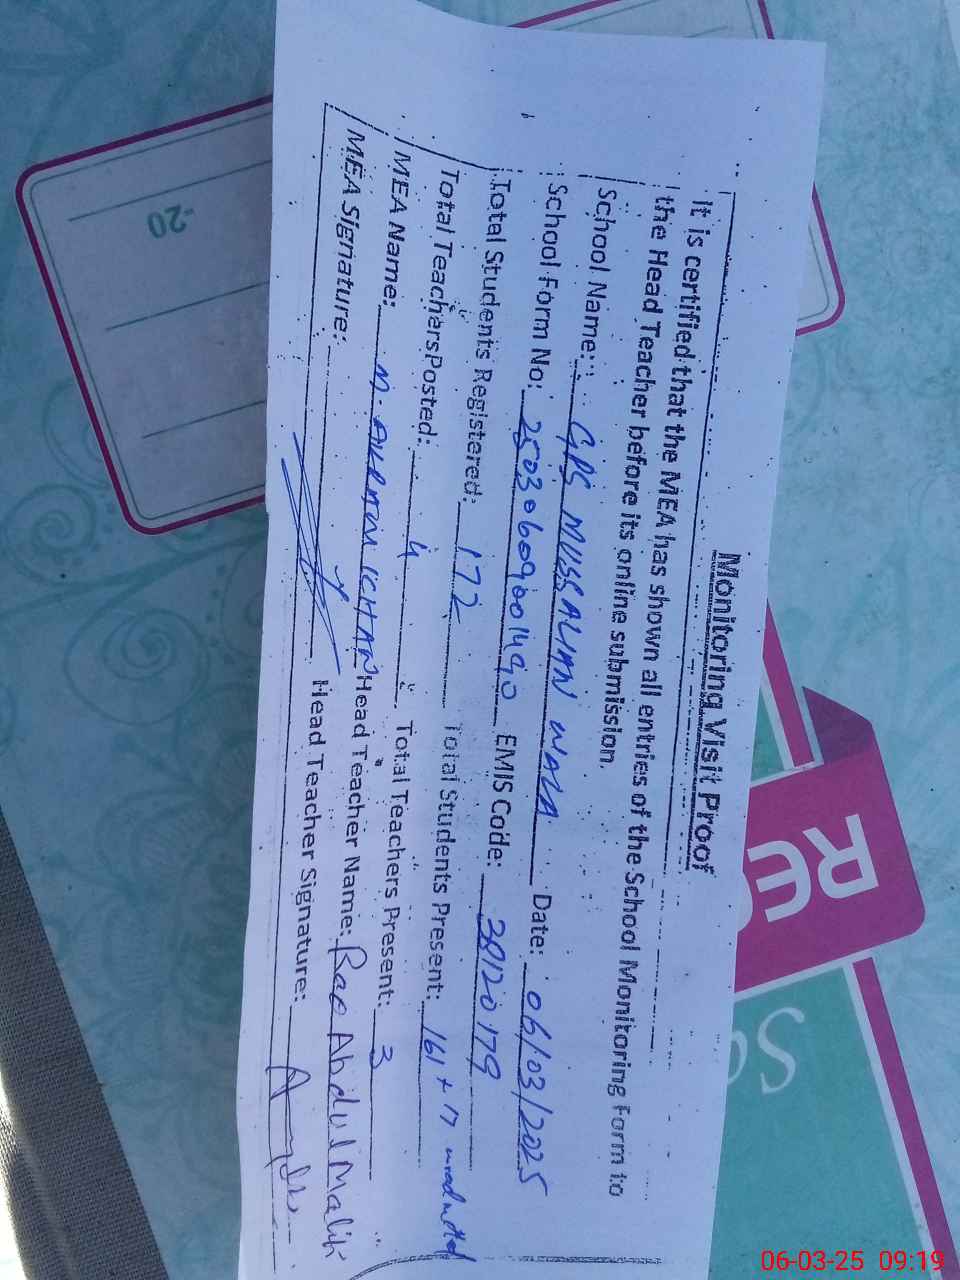 Monitoring Visit Proof
It is certified that the MEA has shown all entries of the School Monitoring Form to
the Head Teacher before its online submission.
School Name: GPS MUSSALIAN WALA Date: 06/03/2025
School Form No: 25030609001490 EMIS Code: 38120179
Total Students Registered: 172 Total Students Present: 161 +
Total Teachers Posted: 4 Total Teachers Present: 3
MEA Name: M. AKRAM KHAN Head Teacher Name: Rao Abdul Malik
MEA Signature: Head Teacher Signature:
-20
RE
Sc
06-03-25 09:19